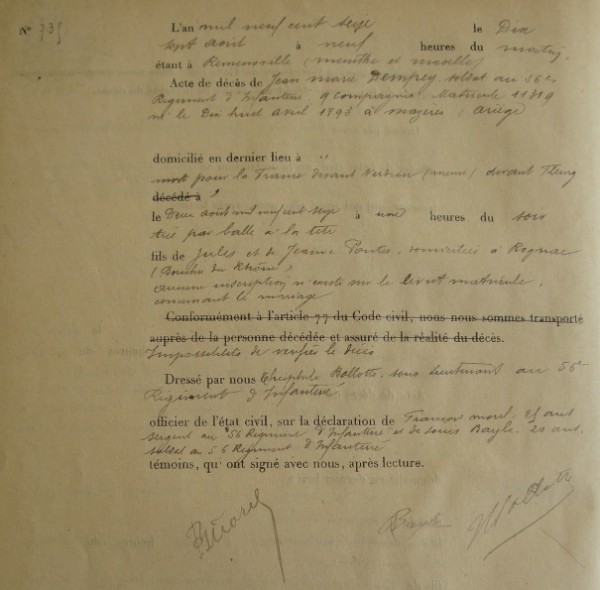 N° 735 L'an mil neuf cent seize le Dix
sept août à neuf heures du matin,
étant à Remenoville (meurthe et moselle)
Acte de décès de Jean marie Dempey, soldat au 56e
Regiment d'Infanterie 9 compagnie. Matricule 11319
né le Dix huit avril 1893 à mazères, ariège
domicilié en dernier lieu à "
mort pour la France devant Verdun (meuse) devant Fleury
décédé à
le Deux août mil neuf cent seize à heures du soir
tué par balle à la tete
fils de Jules et de Jeanne Pontes, domiciliés à Rognac
(Bouches du Rhône)
aucune inscription n'existe sur le livret matricule,
concernant le mariage
Conformément à l'article 77 du Code civil, nous nous sommes transporté
auprès de la personne décédée et assuré de la réalité du décès.
Impossibilité de verifier le décès
Dressé par nous Théophile Bollotte, sous lieutenant au 56e
Régiment d'Infanterie
officier de l'état civil, sur la déclaration de François morel, ans
sergent au 56 Regiment d'Infanterie et de Louis Bayle, ans,
soldat au 56 Regiment d'Infanterie
témoins, qui ont signé avec nous, après lecture.
Morel Bollotte